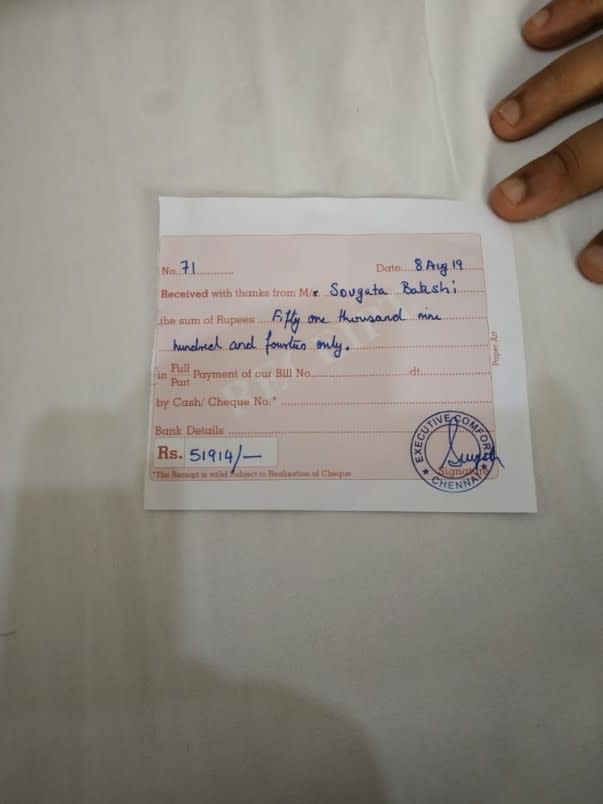 No. 71 Date 8 Aug 19
Received with thanks from M/r. Sougata Bakshi
the sum of Rupees Fifty one thousand nine
hundred and fourteen only.
in Full Part Payment of our Bill No. dt.
by Cash/ Cheque No.*
Bank Details
Rs. 51914/-
*The Receipt is valid Subject to Realisation of Cheque
Signature
EXECUTIVE COMFORT
★ CHENNAI ★
Paper Art
RECEIPT